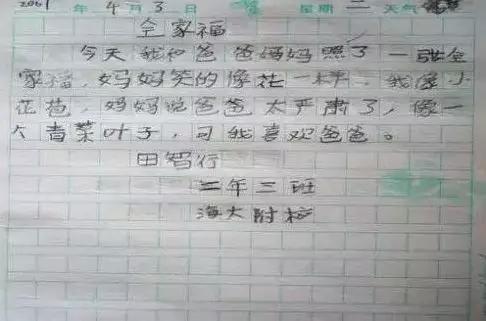 2001年4月3日 星期二 天气
全家福
今天我和爸爸妈妈照了一张全
家福,妈妈笑的像花一样,我像小
花苞,妈妈说爸爸太严肃了,像一
个青菜叶子,可我喜欢爸爸。
田智行
二年三班
海大附校